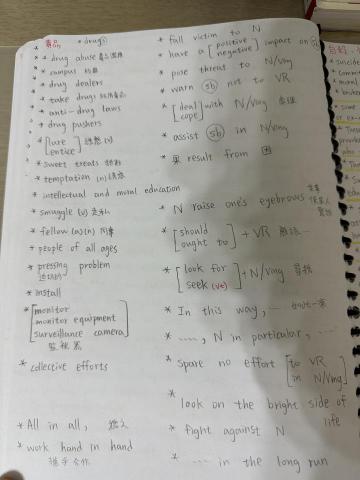 毒品
* drugs
* drug abuse 毒品濫用
* campus 校園
* drug dealers
* take drugs 服用毒品
* anti-drug laws
* drug pushers
* [lure
entice] 誘惑 (v)
* sweet treats
* temptation (n) 誘惑
* intellectual and moral education
* smuggle (v) 走私
* fellow (a)(n) 同事
* people of all ages
* pressing problem
迫切的
* install
* [monitor
monitor equipment
surveillance camera]
監視器
* collective efforts
* All in all,
* work hand in hand
攜手合作
* fall victim to N
* have a [positive
negative] impact on sb
* pose threat to N/Ving
* warn sb not to VR
* [deal
cope] with N/Ving 處理
* assist sb in N/Ving
* 果 result from 因
* N raise one's eyebrows
* [should
ought to] + VR 應該…
* [look for
seek (vt)] + N/Ving 尋找
* In this way, …
* …, N in particular, …
* spare no effort [to VR
in N/Ving]
* look on the bright side of
life
* fight against N
* … in the long run